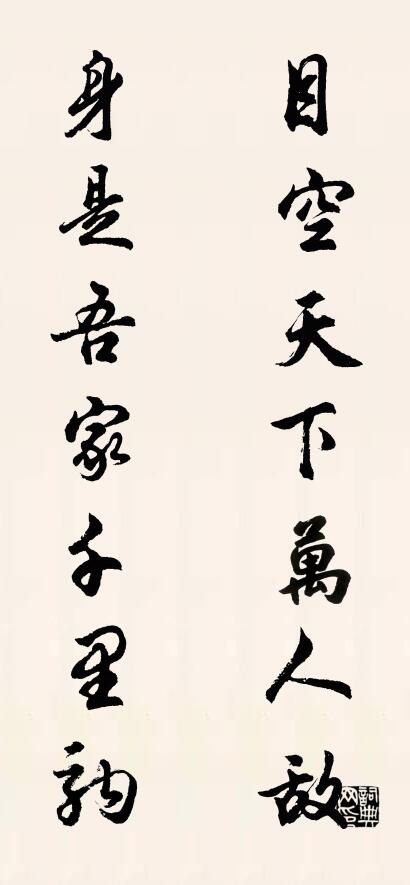 目空天下萬人敵
身是吾家千里駒
詞典网印